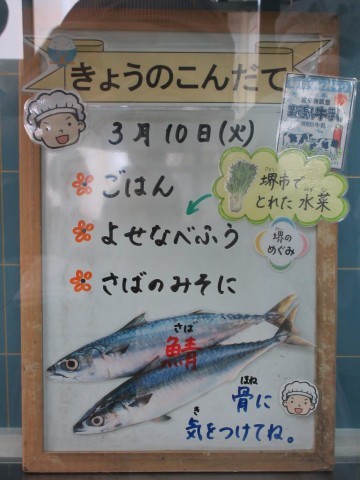 きょうのこんだて
3月10日(火)
ごはん
堺市で
とれた水菜
よせなべふう
堺の
めぐみ
さばのみそに
さば
鯖
ほね
骨に
き
気をつけてね。